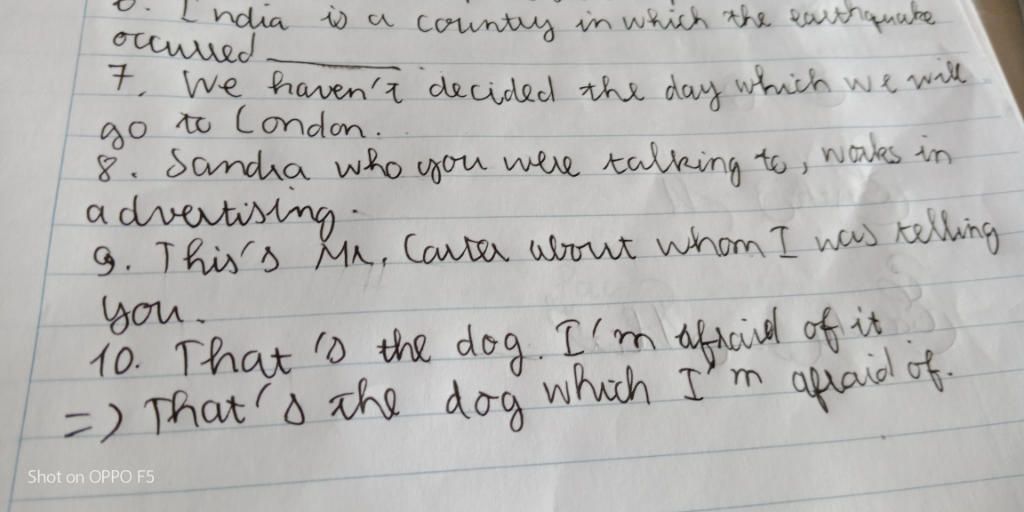 6. India is a country in which the earthquake
occurred ________
7. We haven't decided the day which we will
go to London.
8. Sandra who you were talking to, works in
advertising.
9. This's Mr. Carter about whom I was telling
you.
10. That's the dog. I'm afraid of it
=) That's the dog which I'm afraid of.
Shot on OPPO F5